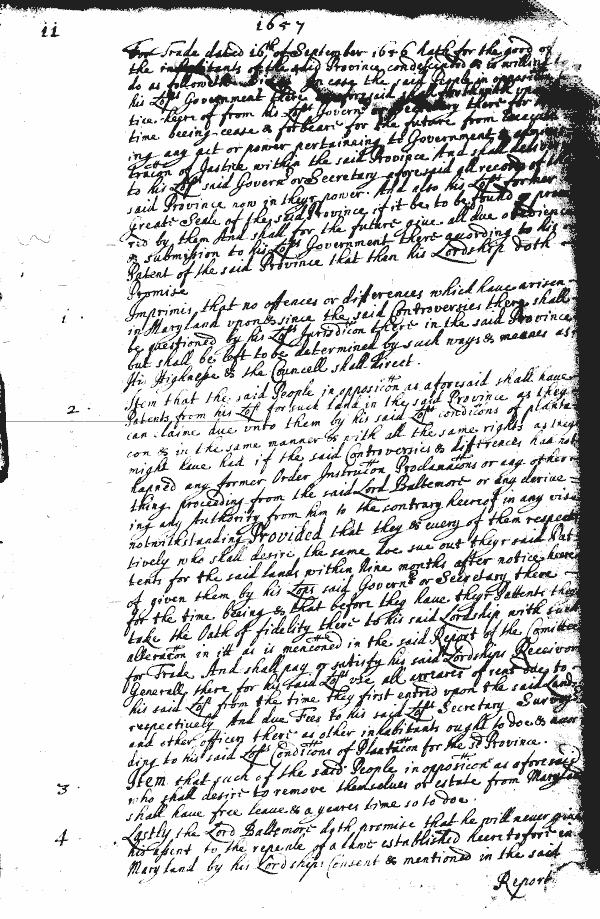 11 1657
For Trade dated 16th of September 1656 hath for the good of
the inhabitants of the said Province condescended & is willing to
do as followeth In case the said People in opposition
his Lopps Government there aforesaid shall forthwith upon
tice heere of from his Lopps Governor or Secretary there for
time beeing cease & forbeare for the future from
ing any act or power pertaining to Government &
tracon of Justice within the said Province And shall deliver
to his Lopps said Governor or Secretary aforesaid all records of the
said Province now in theyr power. And also his Lopps former
greate Seale of the said Province if it be to be found &
red by them And shall for the future give all due obedience
& submission to his Lopps Government there acording to his
Patent of the said Province that than his Lordship doth
Promise
1 Imprimis, that no offences or differences which have arisen
in Maryland vpon & since the said Controversies there shall
be questioned by his Lopps Jurisdicon there in the said Province
but shall be left to be determined by such ways & meanes as
His Highnesse & the Councell shall direct.
2 Item that the said People in opposicon as aforesaid shall have
Patents from his Lopp for such land in the said Province as they
can claime due vnto them by his said Lopps condicons of planta
con & in the same manner & with all the same rights as they
might have had if the said Controversies & differences had not
hapned any former Order Instruction Proclamacons or any other
thing proceeding from the said Lord Baltemore or any derive
ing any Authority from him to the contrary heereof in any wise
notwithstanding Provided that they & every of them respec
tively who shall desire the same doe sue out theyr said Pat
tents for the said lands within Nine months after notice heere
of given them by his Lopps said Governor or Secretary there
for the time beeing & that before they have theyr Pattents they
take the Oath of fidelity there to his said Lordship with such
alteracon in itt as is menconed in the said Report of the Comittee
for Trade. And shall pay or satisfy his said Lordships Receivor
Generall there for his said Lopps vse all arreares of rent due to
his said Lopp from the time they first entred vpon the said Land
respectively And due Fees to his said Lopps Secretary Survey
and other officers there as other inhabitants ought to doe & acor
ding to his said Lopps Condicons of Plantacon for the sd Province.
3 Item that such of the said People in opposicon as aforesaid
who shall desire to remove themselves or estate from Maryland
shall have free leave & a yeares time so to doe.
4 Lastly the Lord Baltemore doth promise that he will never give
his assent to the repeale of a lawe established heeretofore in
Maryland by his Lordships Consent & mentioned in the said
Report